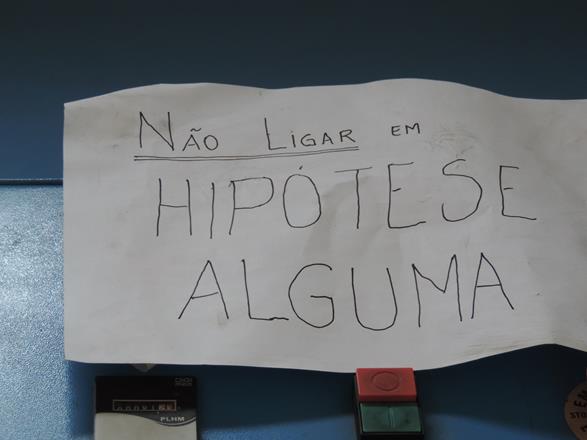 Não Ligar em
HIPÓTESE
ALGUMA
PLHM